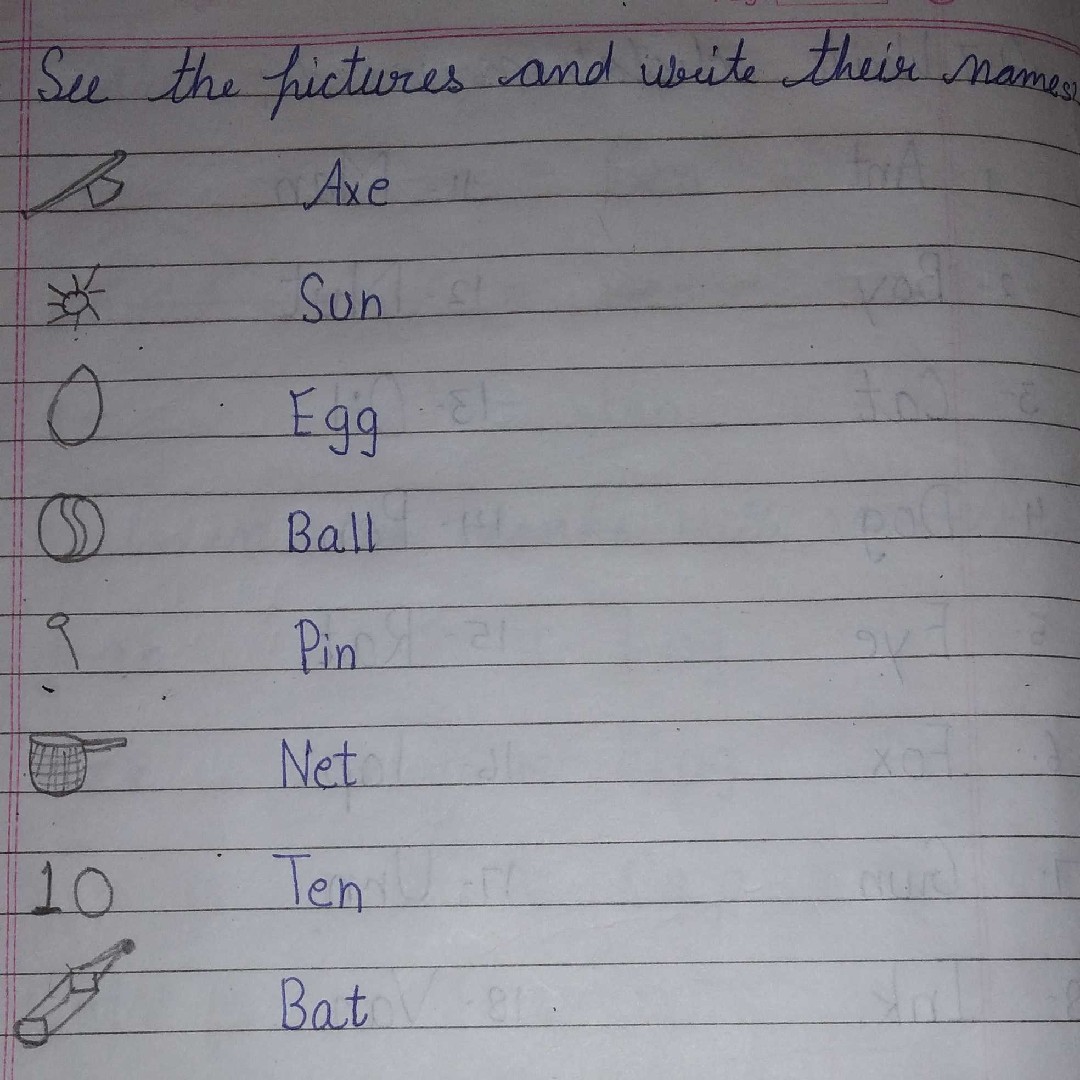 See the pictures and write their names:
Axe
Sun
Egg
Ball
Pin
Net
10 Ten
Bat